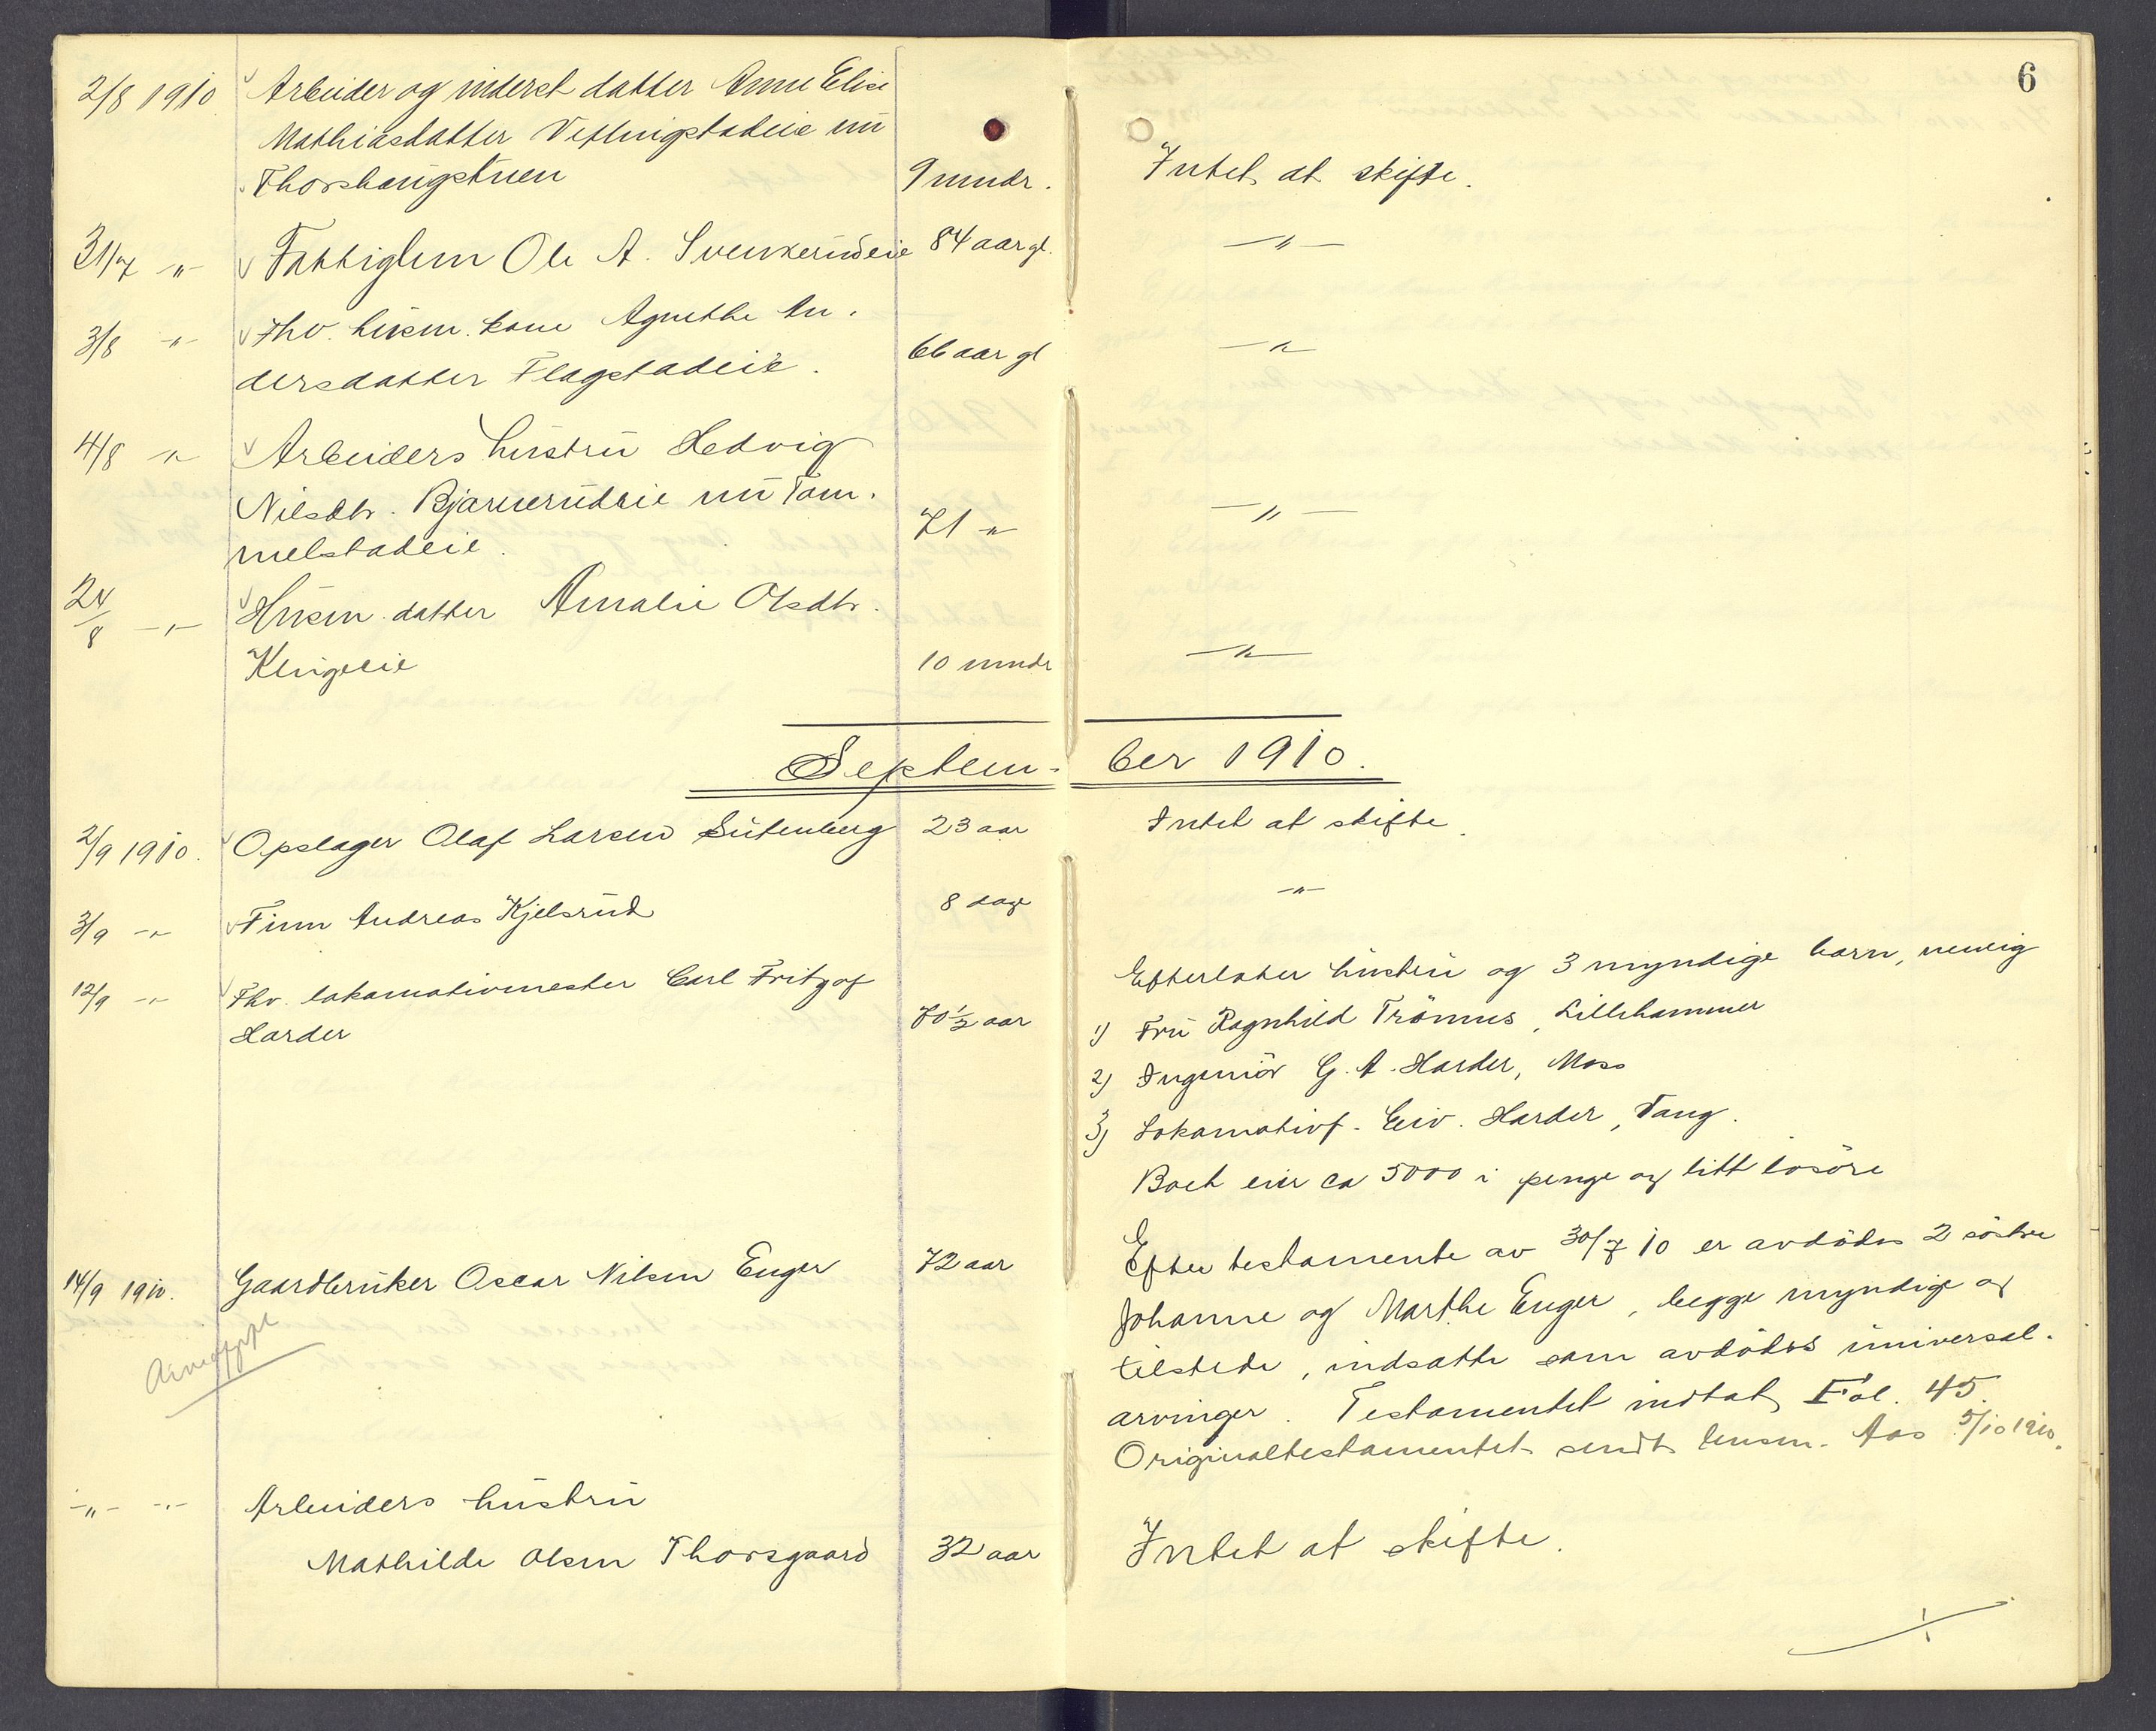 6
2/8 1910 Arbeider og inderst datter Anne Elise
Mathiasdatter Veflingstadeie nu
Thorshaugstuen 9 mndr. Intet at skifte.
31/7 -"- Fattiglem Ole A. Svenkerudeie 84 aar gl. -"-
3/8 -"- Fhv. husm. kone Agnethe An-
dersdatter Flagstadeie. 66 aar gl -"-
4/8 -"- Arbeiders hustru Hedvig
Nilsdtr. Bjørnerudeie nu Tom-
melstadeie. 71 -"- -"-
24/8 -"- Husm. datter Amalie Olsdtr.
Klingeeie 10 mndr -"-
Septem- ber 1910.
2/9 1910. Opslager Olaf Larsen Sutenberg 23 aar Intet at skifte.
3/9 -"- Finn Andreas Kjelsrud 8 dage -"-
12/9 -"- Fhv. lokomotivmester Carl Fritzof
Harder 70½ aar
Efterlater hustru og 3 myndige barn, nemlig
1) Fru Ragnhild Trönnes, Lillehammer
2) Ingeniör G. A. Harder, Moss
3) Lokomotivf. Eiv. Harder, Vang.
Boet eier ca 5000 i penge og litt lösöre
14/9 1910. Gaardbruker Oscar Nilsen Enger 72 aar
Efter testamente av 30/7 10 er avdödes 2 söstre
Johanne og Marthe Enger, begge myndige og
tilstede, indsatte som avdödes universal-
arvinger. Testamentet indtat Fol. 45.
Originaltestamentet sendt lensm. Aas 5/10 1910.
-"- -"- Arbeiders hustru
Mathilde Olsen Thorsgaard 32 aar Intet at skifte.